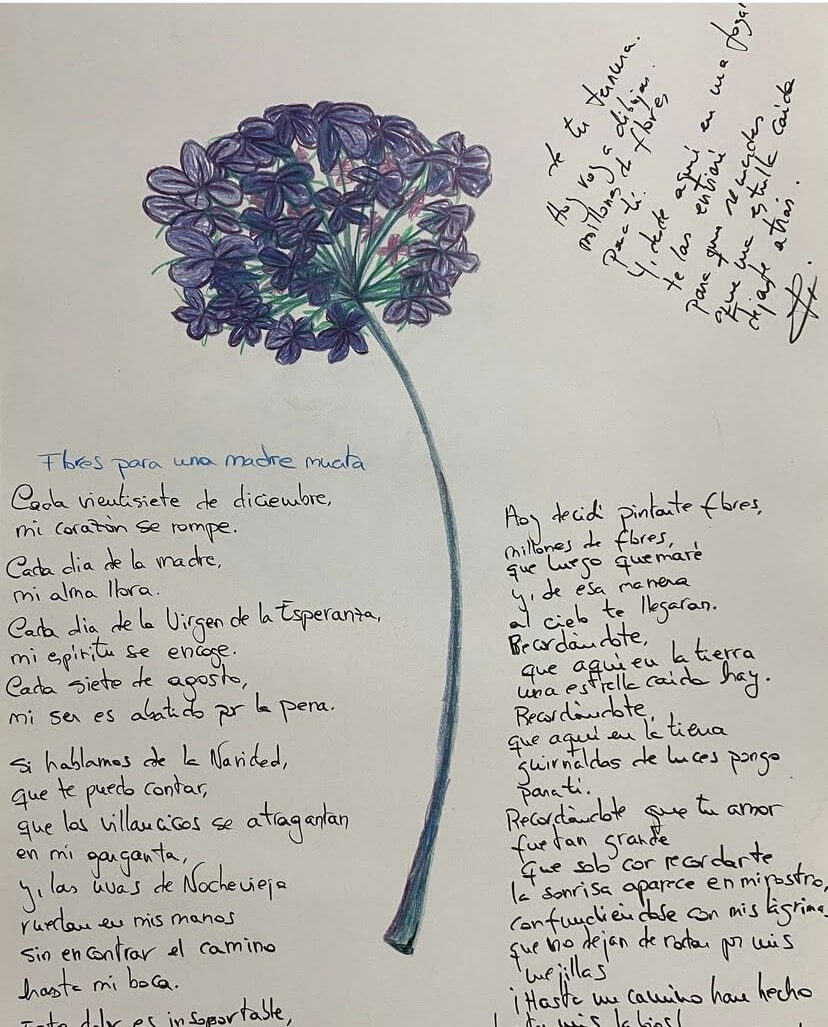 Flores para una madre muerta
Cada vientisiete de diciembre,
mi corazón se rompe.
Cada dia de la madre,
mi alma llora.
Cada dia de la Virgen de la Esperanza,
mi espíritu se encoge.
Cada siete de agosto,
mi ser es abatido por la pena.
Si hablamos de la Navidad,
que te puedo contar,
que los villancicos se atragantan
en mi garganta,
y, las uvas de Nochevieja
ruedan en mis manos
sin encontrar el camino
hasta mi boca.
dolor es insoportable,
Hoy decidí pintarte flores,
millones de flores,
que luego quemaré
y, de esa manera
al cielo te llegaran.
Recordándote,
que aquí en la tierra
una estrella caida hay.
Recordándote,
que aquí en la tierra
guirnaldas de luces pongo
para ti.
Recordándote que tu amor
fue tan grande
que solo con recordarte
la sonrisa aparece en mi rostro,
confundiéndose con mis lágrimas
que no dejan de rodar por mis
mejillas
¡Hasta un camino han hecho
mis labios!
de tu ternura.
Hoy voy a dibujar
millones de flores
para ti.
Y, desde aquí en una
te las enviaré
para que recuerdes
que una estrella caida
dejaste atrás.